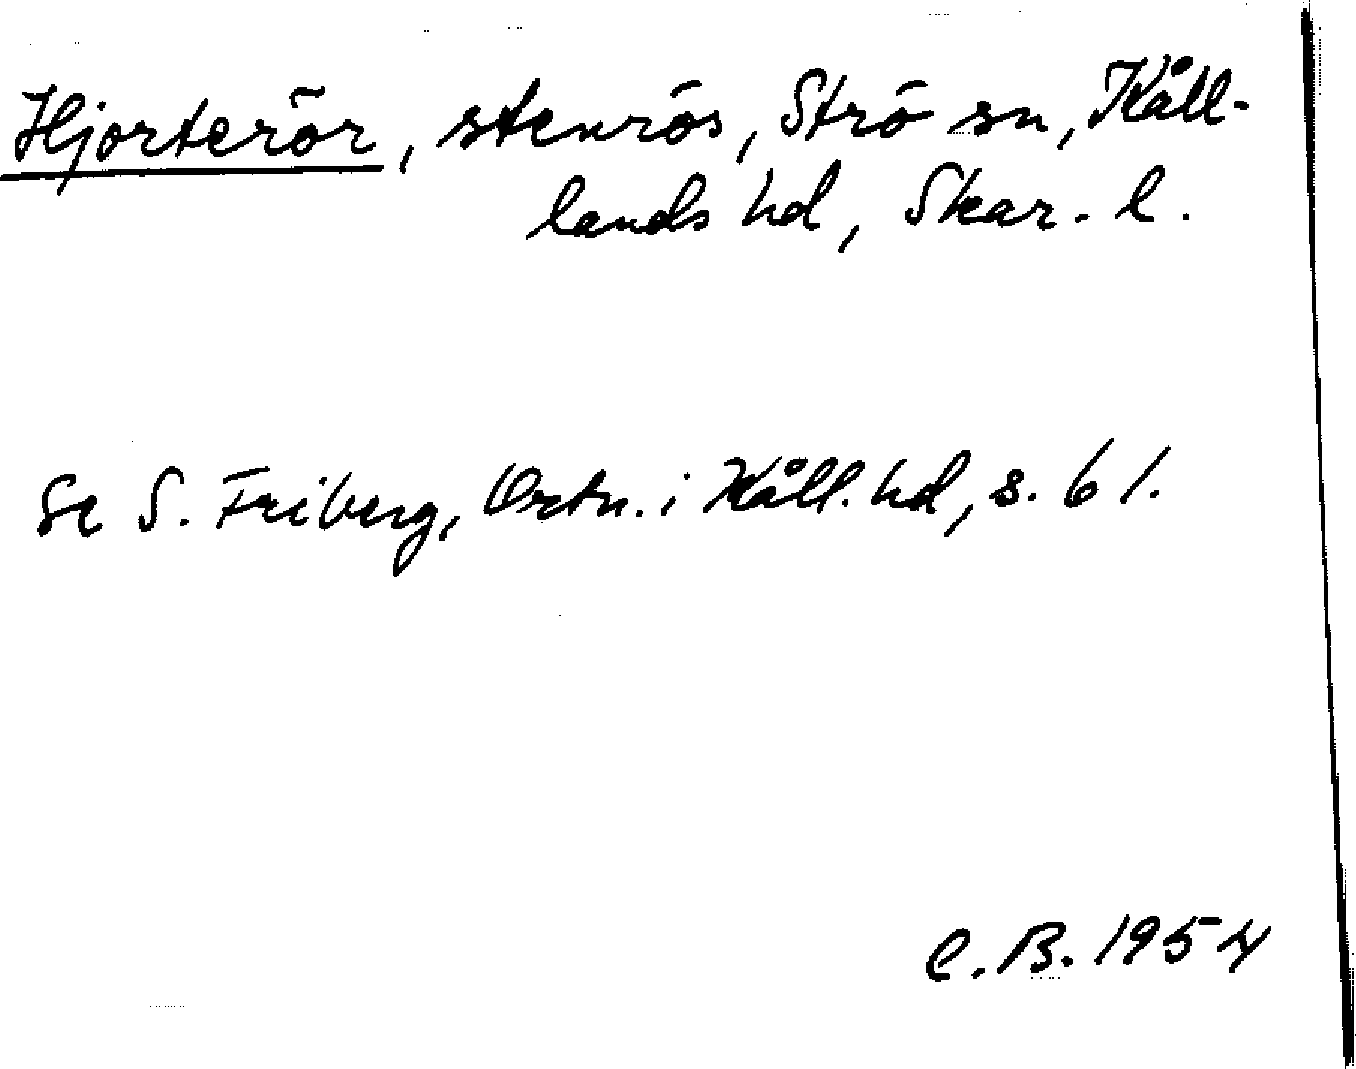 Hjorterör, stenrös, Strö sn, Kåll-
lands hd, Skar. l.
Se S. Friberg, Ortn. i Kåll. hd, s. 61.
C. B. 1954